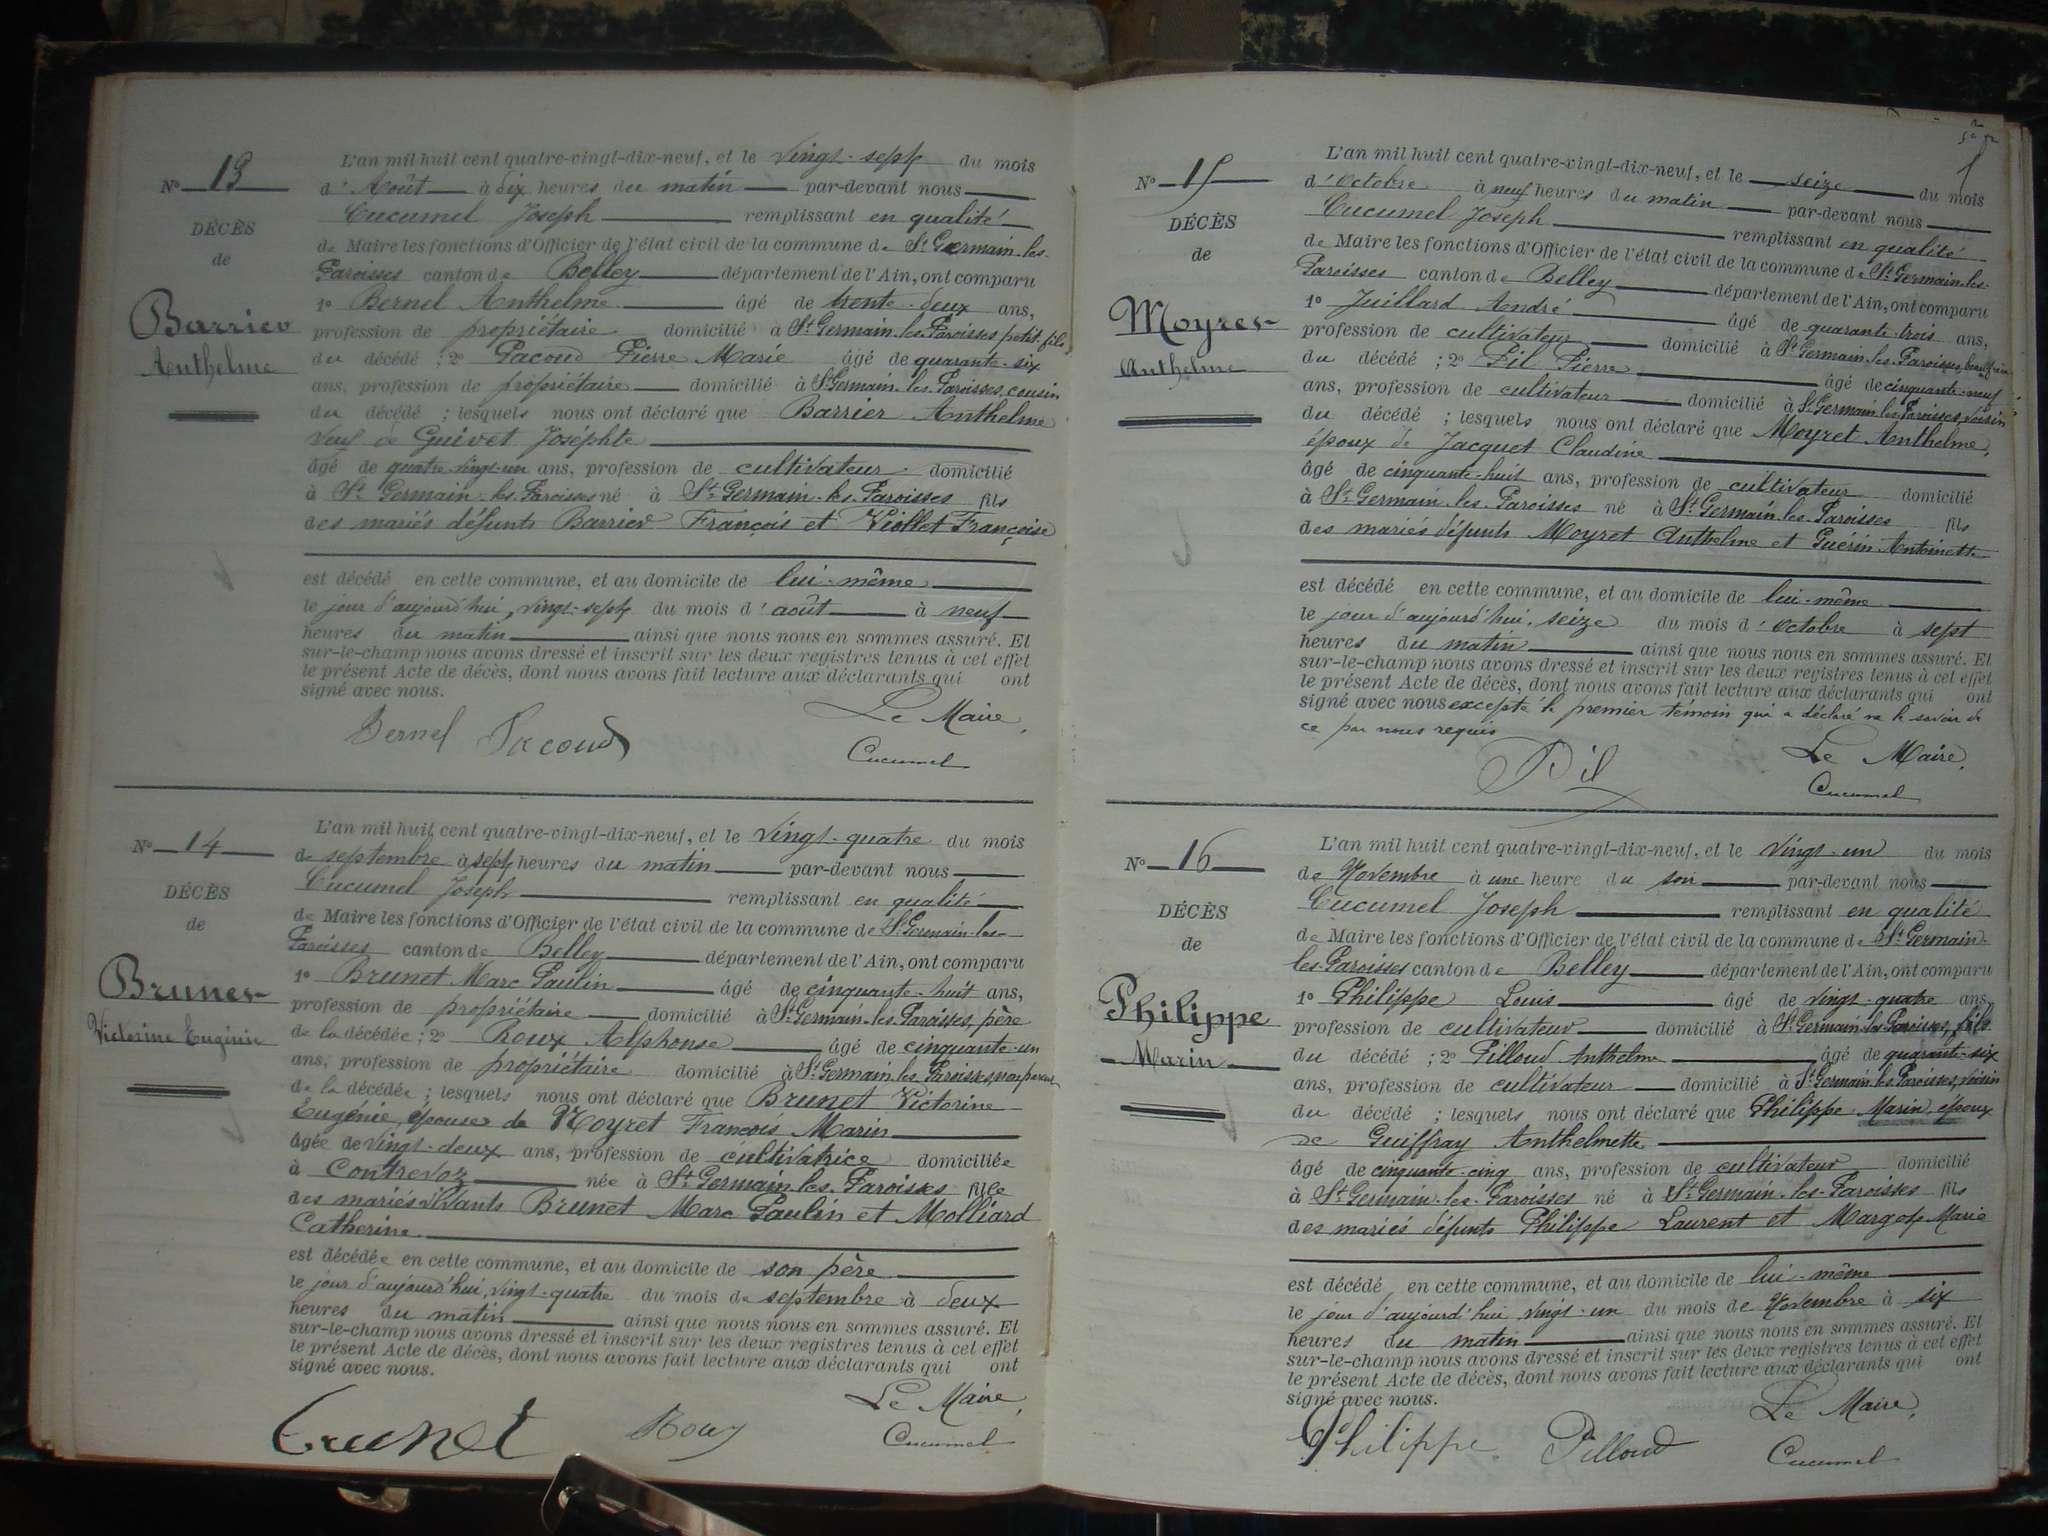 Nº 13
DÉCÈS
de
Barrier
Anthelme
L'an mil huit cent quatre-vingt-dix-neuf, et le vingt-sept du mois
d'Août à dix heures du matin par-devant nous
Cucumel Joseph remplissant en qualité
de Maire les fonctions d'Officier de l'état civil de la commune de St Germain-les-
Paroisses canton de Belley département de l'Ain, ont comparu
1º Bernel Anthelme âgé de trente-deux ans,
profession de propriétaire domicilié à St Germain-les-Paroisses petit-fils
du décédé ; 2º Pacoud Pierre Marie âgé de quarante-six
ans, profession de propriétaire domicilié à St Germain-les-Paroisses, cousin
du décédé ; lesquels nous ont déclaré que Barrier Anthelme
veuf de Guivet Joséphte
âgé de quatre-vingt-un ans, profession de cultivateur domicilié
à St Germain-les-Paroisses né à St Germain-les-Paroisses fils
des mariés défunts Barrier François et Viollet Françoise
est décédé en cette commune, et au domicile de lui-même
le jour d'aujourd'hui, vingt-sept du mois d'août à neuf
heures du matin ainsi que nous nous en sommes assuré. Et
sur-le-champ nous avons dressé et inscrit sur les deux registres tenus à cet effet
le présent Acte de décès, dont nous avons fait lecture aux déclarants qui ont
signé avec nous.
Bernel Pacoud Le Maire,
Cucumel
Nº 14
DÉCÈS
de
Brunet
Victorine Eugénie
L'an mil huit cent quatre-vingt-dix-neuf, et le vingt-quatre du mois
de septembre à sept heures du matin par-devant nous
Cucumel Joseph remplissant en qualité
de Maire les fonctions d'Officier de l'état civil de la commune de St Germain-les-
Paroisses canton de Belley département de l'Ain, ont comparu
1º Brunet Marc Paulin âgé de cinquante-huit ans,
profession de propriétaire domicilié à St Germain-les-Paroisses, père
de la décédée ; 2º Roux Alphonse âgé de cinquante-un
ans, profession de propriétaire domicilié à St Germain-les-Paroisses, non parent
de la décédée ; lesquels nous ont déclaré que Brunet Victorine
Eugénie, épouse de Moyret François Marin
âgée de vingt-deux ans, profession de cultivatrice domiciliée
à Contrevoz née à St Germain-les-Paroisses fille
des mariés vivants Brunet Marc Paulin et Molliard
Catherine
est décédée en cette commune, et au domicile de son père
le jour d'aujourd'hui, vingt-quatre du mois de septembre à deux
heures du matin ainsi que nous nous en sommes assuré. Et
sur-le-champ nous avons dressé et inscrit sur les deux registres tenus à cet effet
le présent Acte de décès, dont nous avons fait lecture aux déclarants qui ont
signé avec nous.
Brunet Roux Le Maire,
Cucumel
Nº 15
DÉCÈS
de
Moyret
Anthelme
L'an mil huit cent quatre-vingt-dix-neuf, et le seize du mois
d'Octobre à neuf heures du matin par-devant nous
Cucumel Joseph remplissant en qualité
de Maire les fonctions d'Officier de l'état civil de la commune de St Germain-les-
Paroisses canton de Belley département de l'Ain, ont comparu
1º Juillard André âgé de quarante-trois ans,
profession de cultivateur domicilié à St Germain-les-Paroisses, beau-frère
du décédé ; 2º Pil Pierre âgé de cinquante-neuf
ans, profession de cultivateur domicilié à St Germain-les-Paroisses, voisin
du décédé ; lesquels nous ont déclaré que Moyret Anthelme,
époux de Jacquet Claudine
âgé de cinquante-huit ans, profession de cultivateur domicilié
à St Germain-les-Paroisses né à St Germain-les-Paroisses fils
des mariés défunts Moyret Anthelme et Guérin Antoinette
est décédé en cette commune, et au domicile de lui-même
le jour d'aujourd'hui, seize du mois d'octobre à sept
heures du matin ainsi que nous nous en sommes assuré. Et
sur-le-champ nous avons dressé et inscrit sur les deux registres tenus à cet effet
le présent Acte de décès, dont nous avons fait lecture aux déclarants qui ont
signé avec nous excepté le premier témoin qui a déclaré ne le savoir de
ce par nous requis
Pil Le Maire,
Cucumel
Nº 16
DÉCÈS
de
Philippe
Marin
L'an mil huit cent quatre-vingt-dix-neuf, et le vingt-un du mois
de Novembre à une heure du soir par-devant nous
Cucumel Joseph remplissant en qualité
de Maire les fonctions d'Officier de l'état civil de la commune de St Germain-
les-Paroisses canton de Belley département de l'Ain, ont comparu
1º Philippe Louis âgé de vingt-quatre ans,
profession de cultivateur domicilié à St Germain-les-Paroisses, fils
du décédé ; 2º Pilloud Anthelme âgé de quarante-six
ans, profession de cultivateur domicilié à St Germain-les-Paroisses, voisin
du décédé ; lesquels nous ont déclaré que Philippe Marin, époux
de Guiffray Anthelmette
âgé de cinquante-cinq ans, profession de cultivateur domicilié
à St Germain-les-Paroisses né à St Germain-les-Paroisses fils
des mariés défunts Philippe Laurent et Margot Marie
est décédé en cette commune, et au domicile de lui-même
le jour d'aujourd'hui, vingt-un du mois de Novembre à six
heures du matin ainsi que nous nous en sommes assuré. Et
sur-le-champ nous avons dressé et inscrit sur les deux registres tenus à cet effet
le présent Acte de décès, dont nous avons fait lecture aux déclarants qui ont
signé avec nous.
Philippe Pilloud Le Maire,
Cucumel